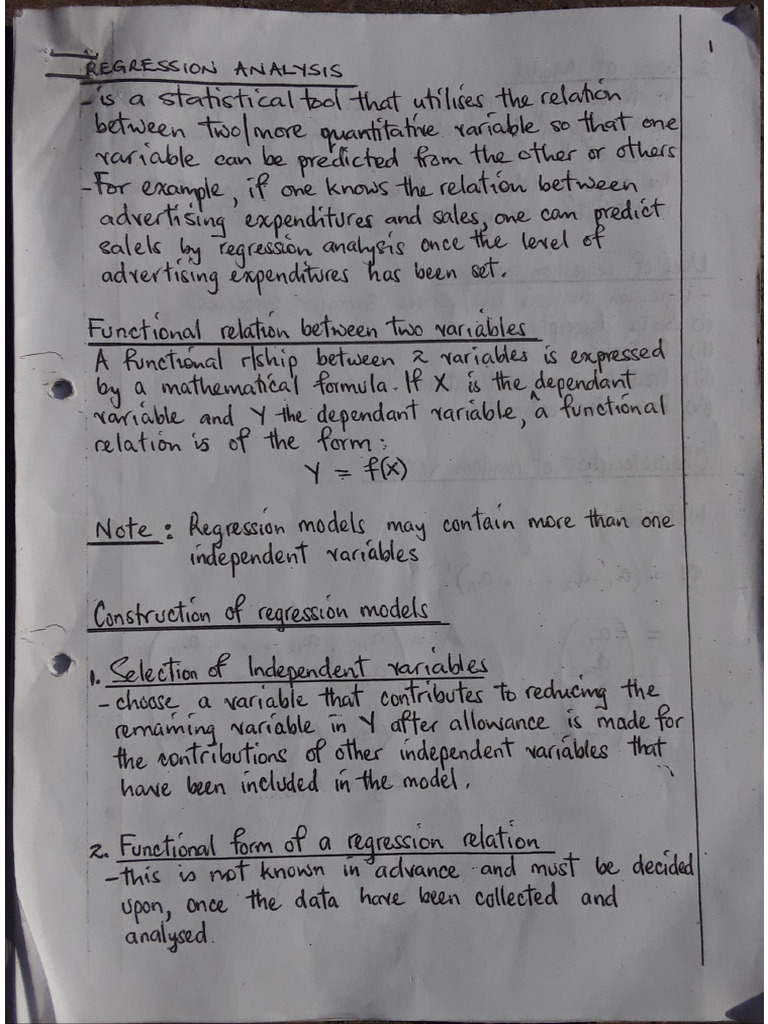 1
REGRESSION ANALYSIS
- is a statistical tool that utilises the relation
between two/more quantitative variable so that one
variable can be predicted from the other or others
- For example, if one knows the relation between
advertising expenditures and sales, one can predict
salels by regression analysis once the level of
advertising expenditures has been set.
Functional relation between two variables
A functional r/ship between 2 variables is expressed
by a mathematical formula. If X is the dependant
variable and Y the dependant variable, ^ a functional
relation is of the form:
Y = f(x)
Note: Regression models may contain more than one
independent variables
Construction of regression models
1. Selection of Independent variables
- choose a variable that contributes to reducing the
remaining variable in Y after allowance is made for
the contributions of other independent variables that
have been included in the model.
2. Functional form of a regression relation
- this is not known in advance and must be decided
upon, once the data have been collected and
analysed.